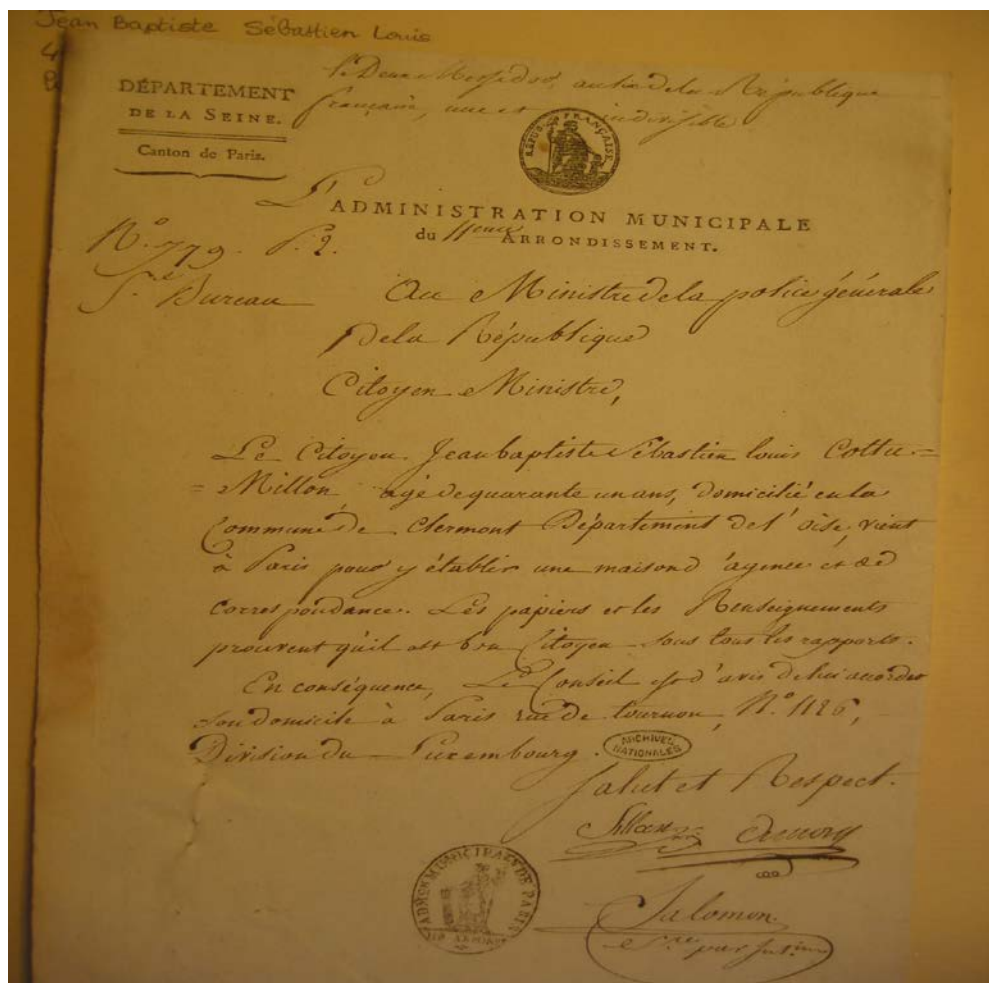 Jean Baptiste Sébastien Louis
4
DÉPARTEMENT
DE LA SEINE.
Canton de Paris.
Le Deux Messidor, an six de la République
française, une et indivisible
RÉPUB. FRANÇAISE
L'ADMINISTRATION MUNICIPALE
du 11eme ARRONDISSEMENT.
N.° 779. P. 2.
S.té Bureau
Au Ministre de la police générale
de la République
Citoyen Ministre,
Le Citoyen Jean baptiste Sébastien louis Cottu =
= Millon, agé de quarante un ans, domicilié en la
Commune de Clermont Département de l'oise, vient
à Paris pour y établir une maison d'agence et de
correspondance. Les papiers et les Renseignements
prouvent qu'il est bon Citoyen sous tous les rapports.
En conséquence, Le Conseil est d'avis de lui accorder
son domicile à Paris rue de tournon, N.° 1126,
Division du Luxembourg.
ARCHIVES NATIONALES
Salut et Respect.
ADM.ON MUNICIPALE DE PARIS
Salomon